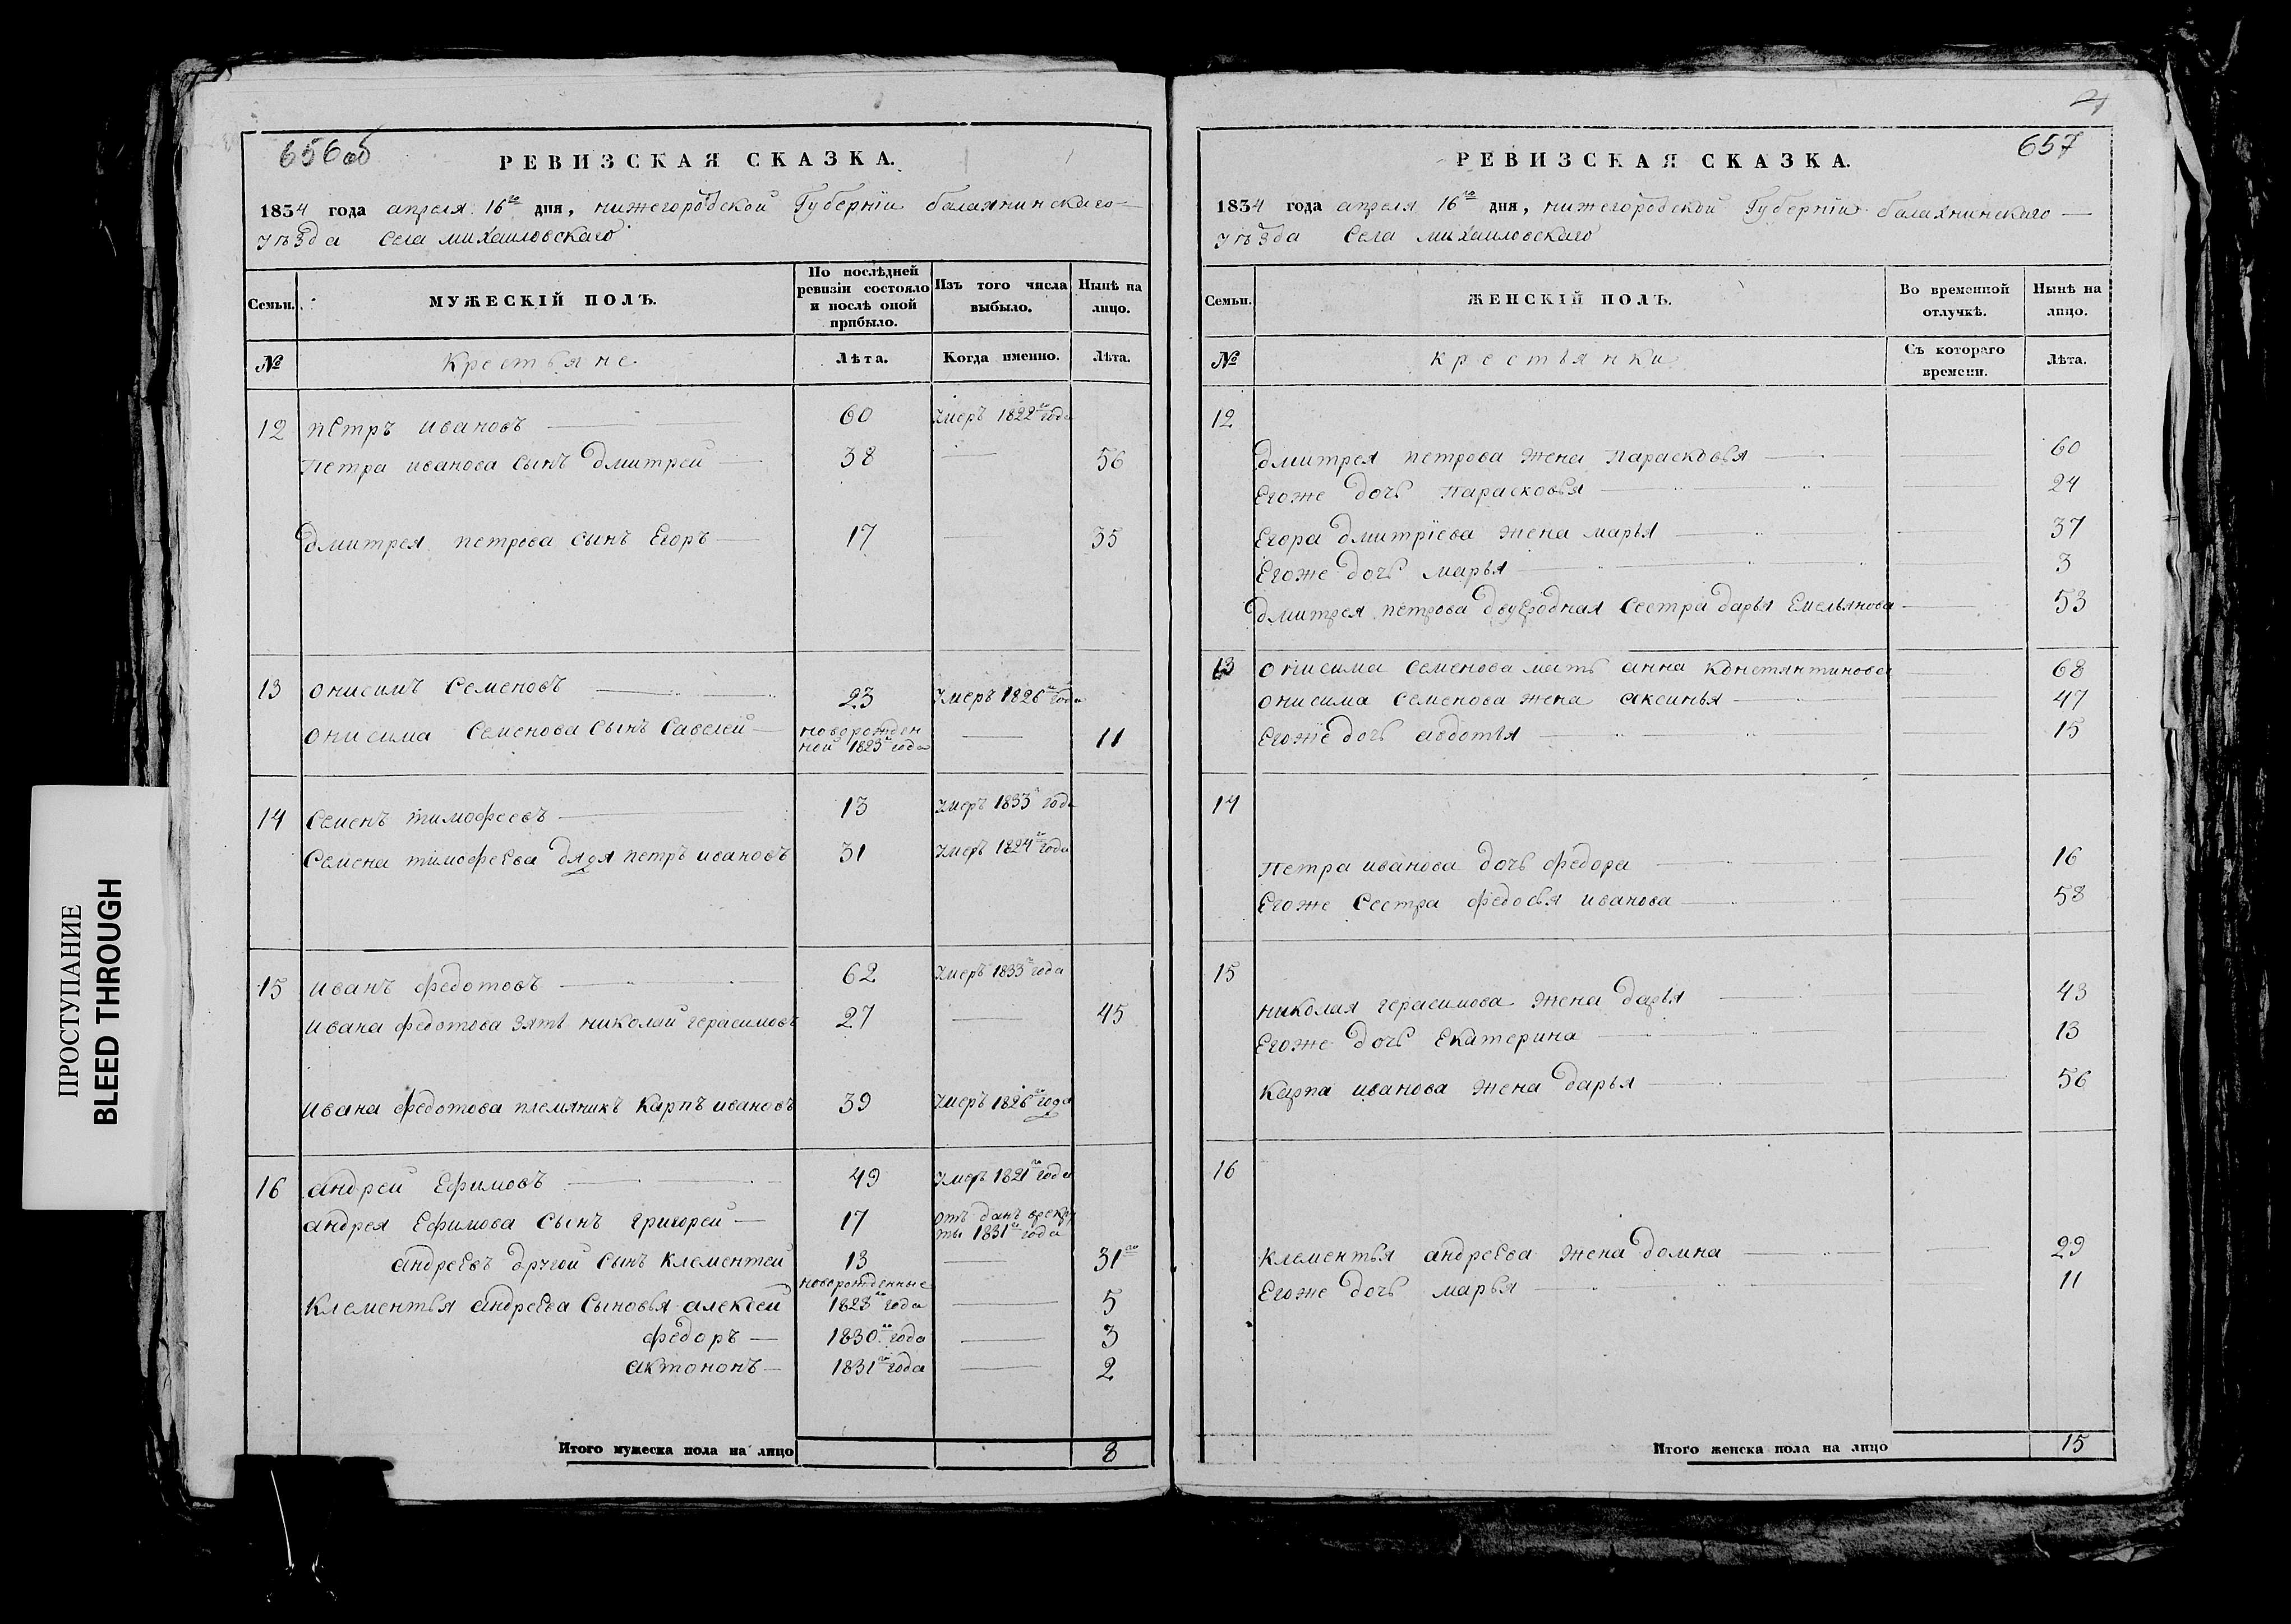 656об
РЕВИЗСКАЯ СКАЗКА.
1834 года апреля 16го дня, нижегородской Губернїи балахнинскаго
уѣзда Села михаиловскаго
Семьи. МУЖЕСКІЙ ПОЛЪ. По послѣдней ревизіи состояло и послѣ оной прибыло. Изъ того числа выбыло. Нынѣ на лицо.
№ Крестьяне Лѣта. Когда именно. Лѣта.
12 петръ ивановъ 60 Умеръ 1822го года
Петра иванова Сынъ дмитреи 38 56
дмитрея петрова Сынъ Егоръ 17 35
13 онисимъ Семеновъ 23 Умеръ 1826го года
онисима Семенова Сынъ Савелеи новорожден ной 1823го года 11
14 Семенъ тимофеевъ 13 Умеръ 1833го года
Семена тимофеева дядя петръ ивановъ 31 Умеръ 1824го года
15 иванъ федотовъ 62 Умеръ 1833го года
ивана федотова зять николаи герасимовъ 27 45
ивана федотова племяникъ Карпъ ивановъ 39 Умеръ 1826го года
16 андреи Ефимовъ 49 Умеръ 1821го года
андрея Ефимова Сынъ григореи 17 отъ данъ врекру ты 1831го года
андреевъ другои Сынъ Клементеи 13 31го
новорожденные
Клементья андреева Сыновья алексеи 1828го года 5
федоръ 1830го года 3
актононъ 1831го года 2
Итого мужеска пола на лицо 8
657
РЕВИЗСКАЯ СКАЗКА.
1834 года апреля 16го дня, нижегородской Губернїи балахнинскаго
уѣзда Села михаиловскаго
Семьи. ЖЕНСКІЙ ПОЛЪ. Во временной отлучкѣ. Нынѣ на лицо.
№ крестьянки Съ котораго времени. Лѣта.
12
дмитрея петрова жена парасковья 60
Егоже дочь парасковья 24
Егора дмитрїева жена марья 37
Егоже дочь марья 3
дмитрея петрова двуеродная Сестра дарья Емельянова 53
13 онисима Семенова мать анна константинова 68
онисима Семенова жена аксинья 47
Егоже дочь авдотья 15
14
Петра иванова дочь федора 16
Егоже Сестра федосья иванова 58
15
николая герасимова жена дарья 43
Егоже дочь Екатерина 13
Карпа иванова жена дарья 56
16
Клементья андреева жена домна 29
Егоже дочь марья 11
Итого женска пола на лицо 15
ПРОСТУПАНИЕ
BLEED THROUGH